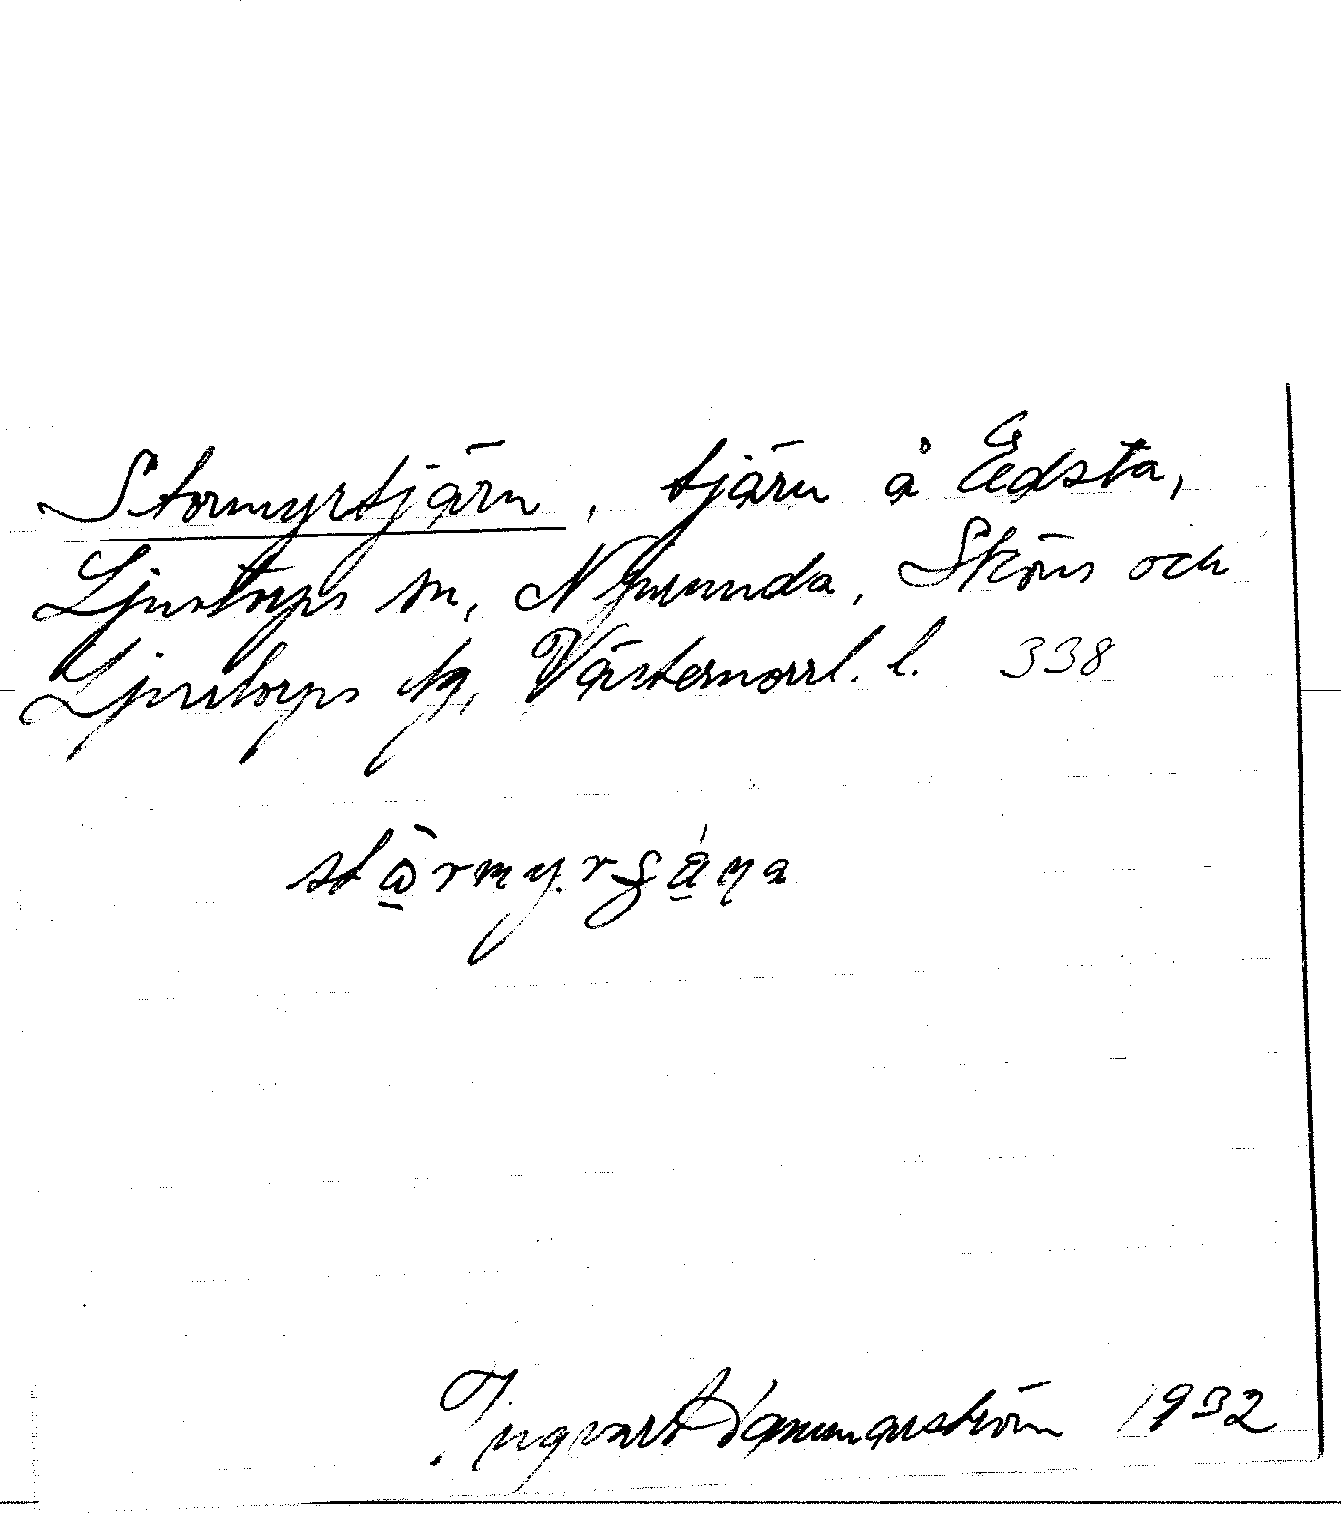 Stormyrtjärn, tjärn å Edsta,
Ljustorps sn, Njurunda, Sköns och
Ljustorps tg, Västernorrl. l. 338
Ingvar Hammarström 1932